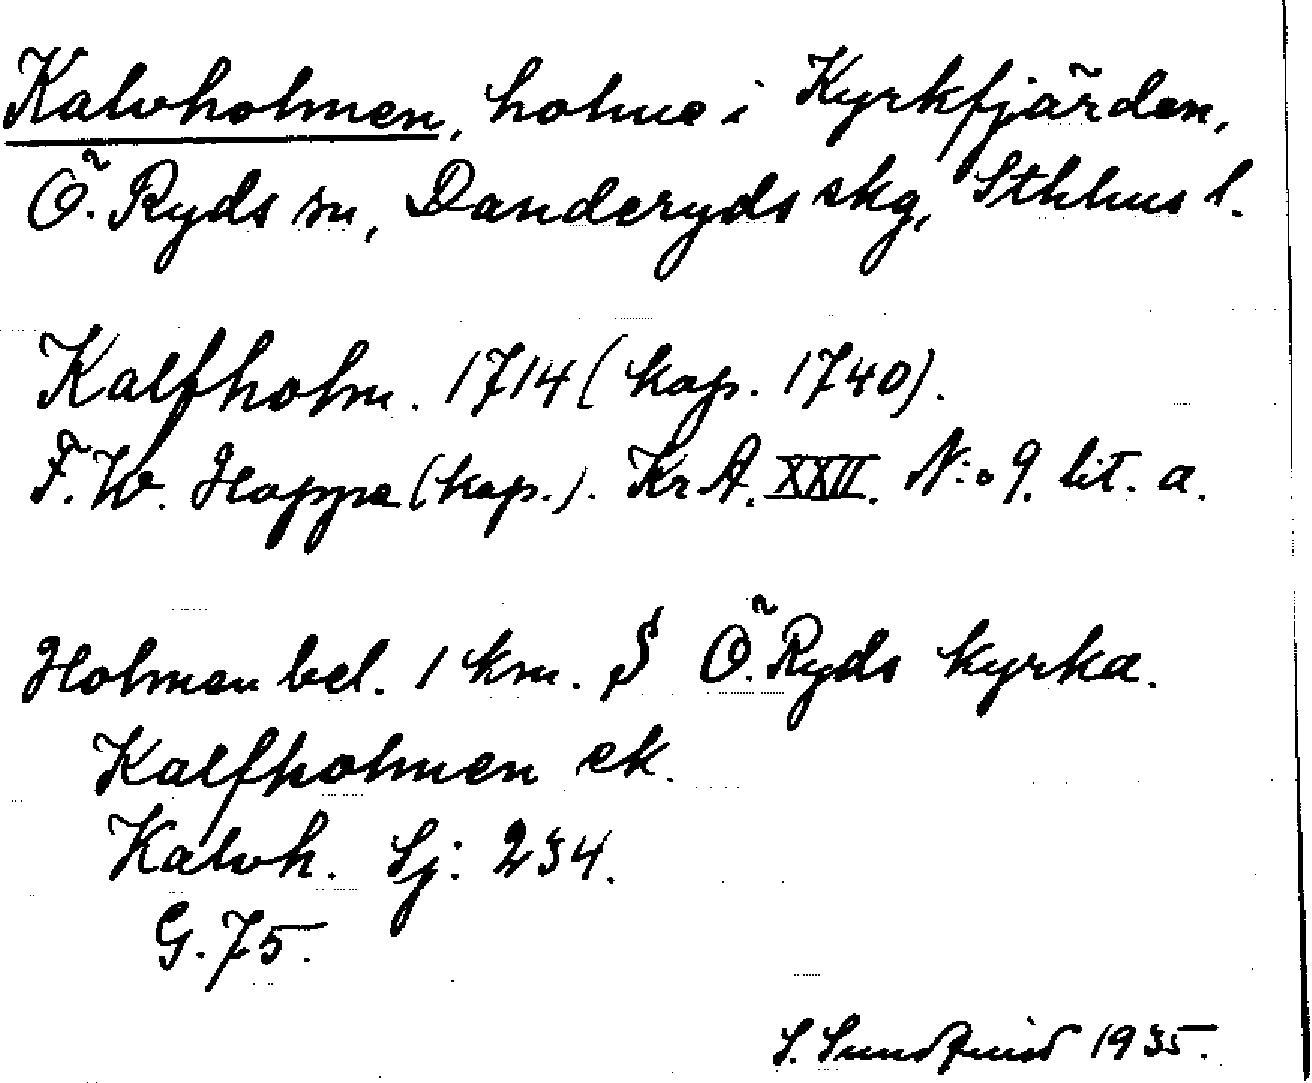 Kalvholmen, holme i Kyrkfjärden,
Ö. Ryds sn, Danderyds skg, Sthlms l.
Kalfholm. 1714 (kop. 1740).
F. W. Hoppe (kop.). Kr A. XXII. N:o 9. lit. a.
Holmen bel. 1 km. S Ö. Ryds kyrka.
Kalfholmen ek.
Kalvh. Sj: 234.
G. 75.
S. 1935.